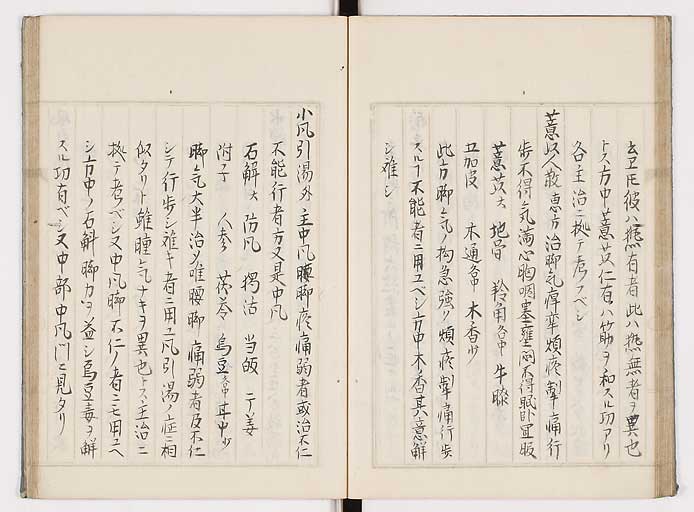 ト云ヒ彼ハ熱有者此ハ熱無者ヲ異也
トス方中薏苡仁有ハ筋ヲ和スル功アリ
各主治ニ拠テ考フベシ
薏苡人散 恵方治脚気痺攣煩疼掣痛行
歩不得気満心胸咽塞壅悶不得眠卧
薏苡大 地骨 羚角各中 牛膝
五加皮 木通各中 木香少
此方脚気ノ拘急強ク煩疼掣痛行歩
スル不能者ニ用ユベシ方中木香其意解
シ難シ
小風引湯外 主中風腰脚疼痛弱者或治不仁
不能行者方又是中風
石斛大 防風 獨活 当皈 干姜
附子 人参 茯苓 烏豆各中 甘中少
脚気大半治メ唯腰脚痛弱者及不仁
シテ行歩シ難キ者ニ用ユ風引湯ノ症ニ相
似タリト雖腫気ナキヲ異也トス主治ニ
拠テ考ベシ又中風脚不仁ノ者ニモ用ユベ
シ方中ノ石斛脚力ヲ益シ烏豆毒ヲ解
スル功有ベシ又中部中風門ニ見タリ